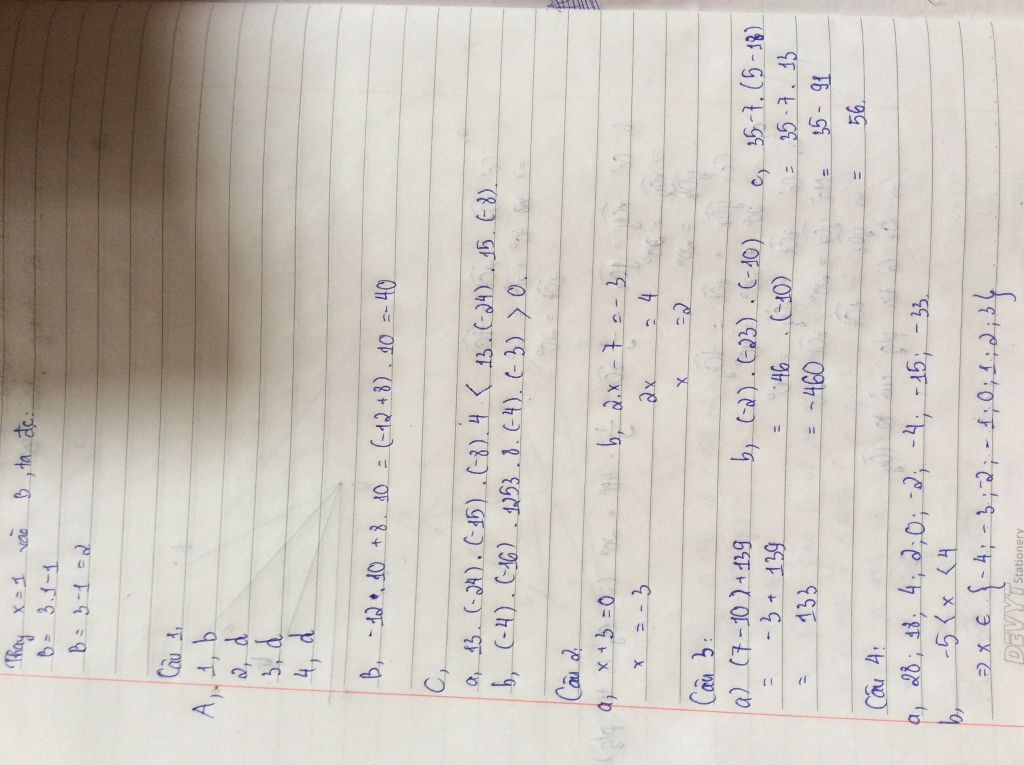 Thay x = 1 vào B, ta đc:
B = 3.1-1
B = 3-1 = 2
Câu 1,
A, 1, b
2, d
3, d
4, d
B, -12.10 + 8.10 = (-12+8).10 = -40
C,
a, 13.(-24).(-15).(-8).4 < 13.(-24).15.(-8).
b, (-4).(-16).1253.8.(-4).(-3) > 0.
Câu 2:
a, x + 3 = 0 b, 2.x - 7 = -3
x = -3 2x = 4
x = 2
Câu 3:
a) (7-10)+139 b, (-2).(-23).(-10) c, 35-7.(5-18)
= -3 + 139 = 46.(-10) = 35-7.13
= 133 = -460 = 35 - 91
= 56.
Câu 4:
a, 28; 18; 4; 2; 0; -2; -4; -15; -33.
b, -5 < x < 4
=> x ∈ {-4; -3; -2; -1; 0; 1; 2; 3}
Stationery